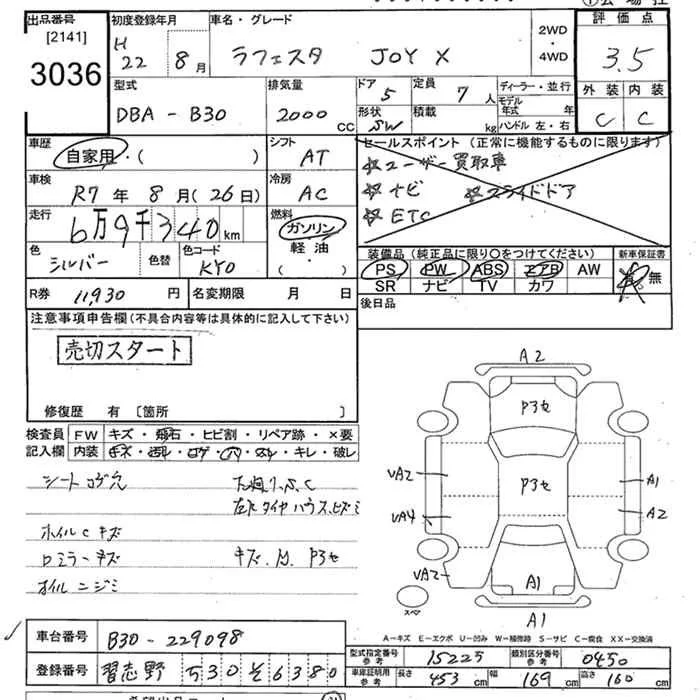 出品番号
[2141]
3036
初度登録年月
H
22 8月
車名・グレード
ラフェスタ JOY X
2WD
・
4WD
評価点
3.5
外装 内装
C C
型式
DBA - B30
排気量
2000 CC
ドア
5
形状
SW
定員
7人
積載
kg
ディーラー・並行
モデル
年式 年
ハンドル 左・右
車歴
自家用・( )
シフト
AT
セールスポイント (正常に機能するものに限ります)
☆ユーザー買取車
☆ナビ ☆スライドドア
☆ETC
車検
R7年 8月(26日)
冷房
AC
走行
6万9千340km
燃料
ガソリン
・
軽油
・
( )
色
シルバー
色替
色コード
KY0
装備品 (純正品に限り○をつけてください)
PS PW ABS エアB AW
SR ナビ TV カワ
新車保証書
有 無
R券 11,930円
名変期限 月 日
後日品
注意事項申告欄(不具合内容等は具体的に記入して下さい)
売切スタート
修復歴 有 〔箇所 〕
検査員
記入欄
FW キズ・飛石・ヒビ割・リペア跡・×要
内装 キズ・汚レ・コゲ・穴・スレ・キレ・破レ
シートコゲ穴
ホイルCキズ
ロミラーキズ
オイルニジミ
キズ.M. P3セ
A2
P3セ
P3セ
UA2
UA4
UA2
A1
A2
A1
A1
スペア
A-キズ E-エクボ U-凹み W-補修跡 S-サビ C-腐食 XX-交換済
車台番号 B30-229098
登録番号 習志野 530 そ 6380
型式指定番号
参考
15225
類別区分番号
参考
0450
車庫証明用
参考
長さ 453cm 幅 169cm 高さ 160cm